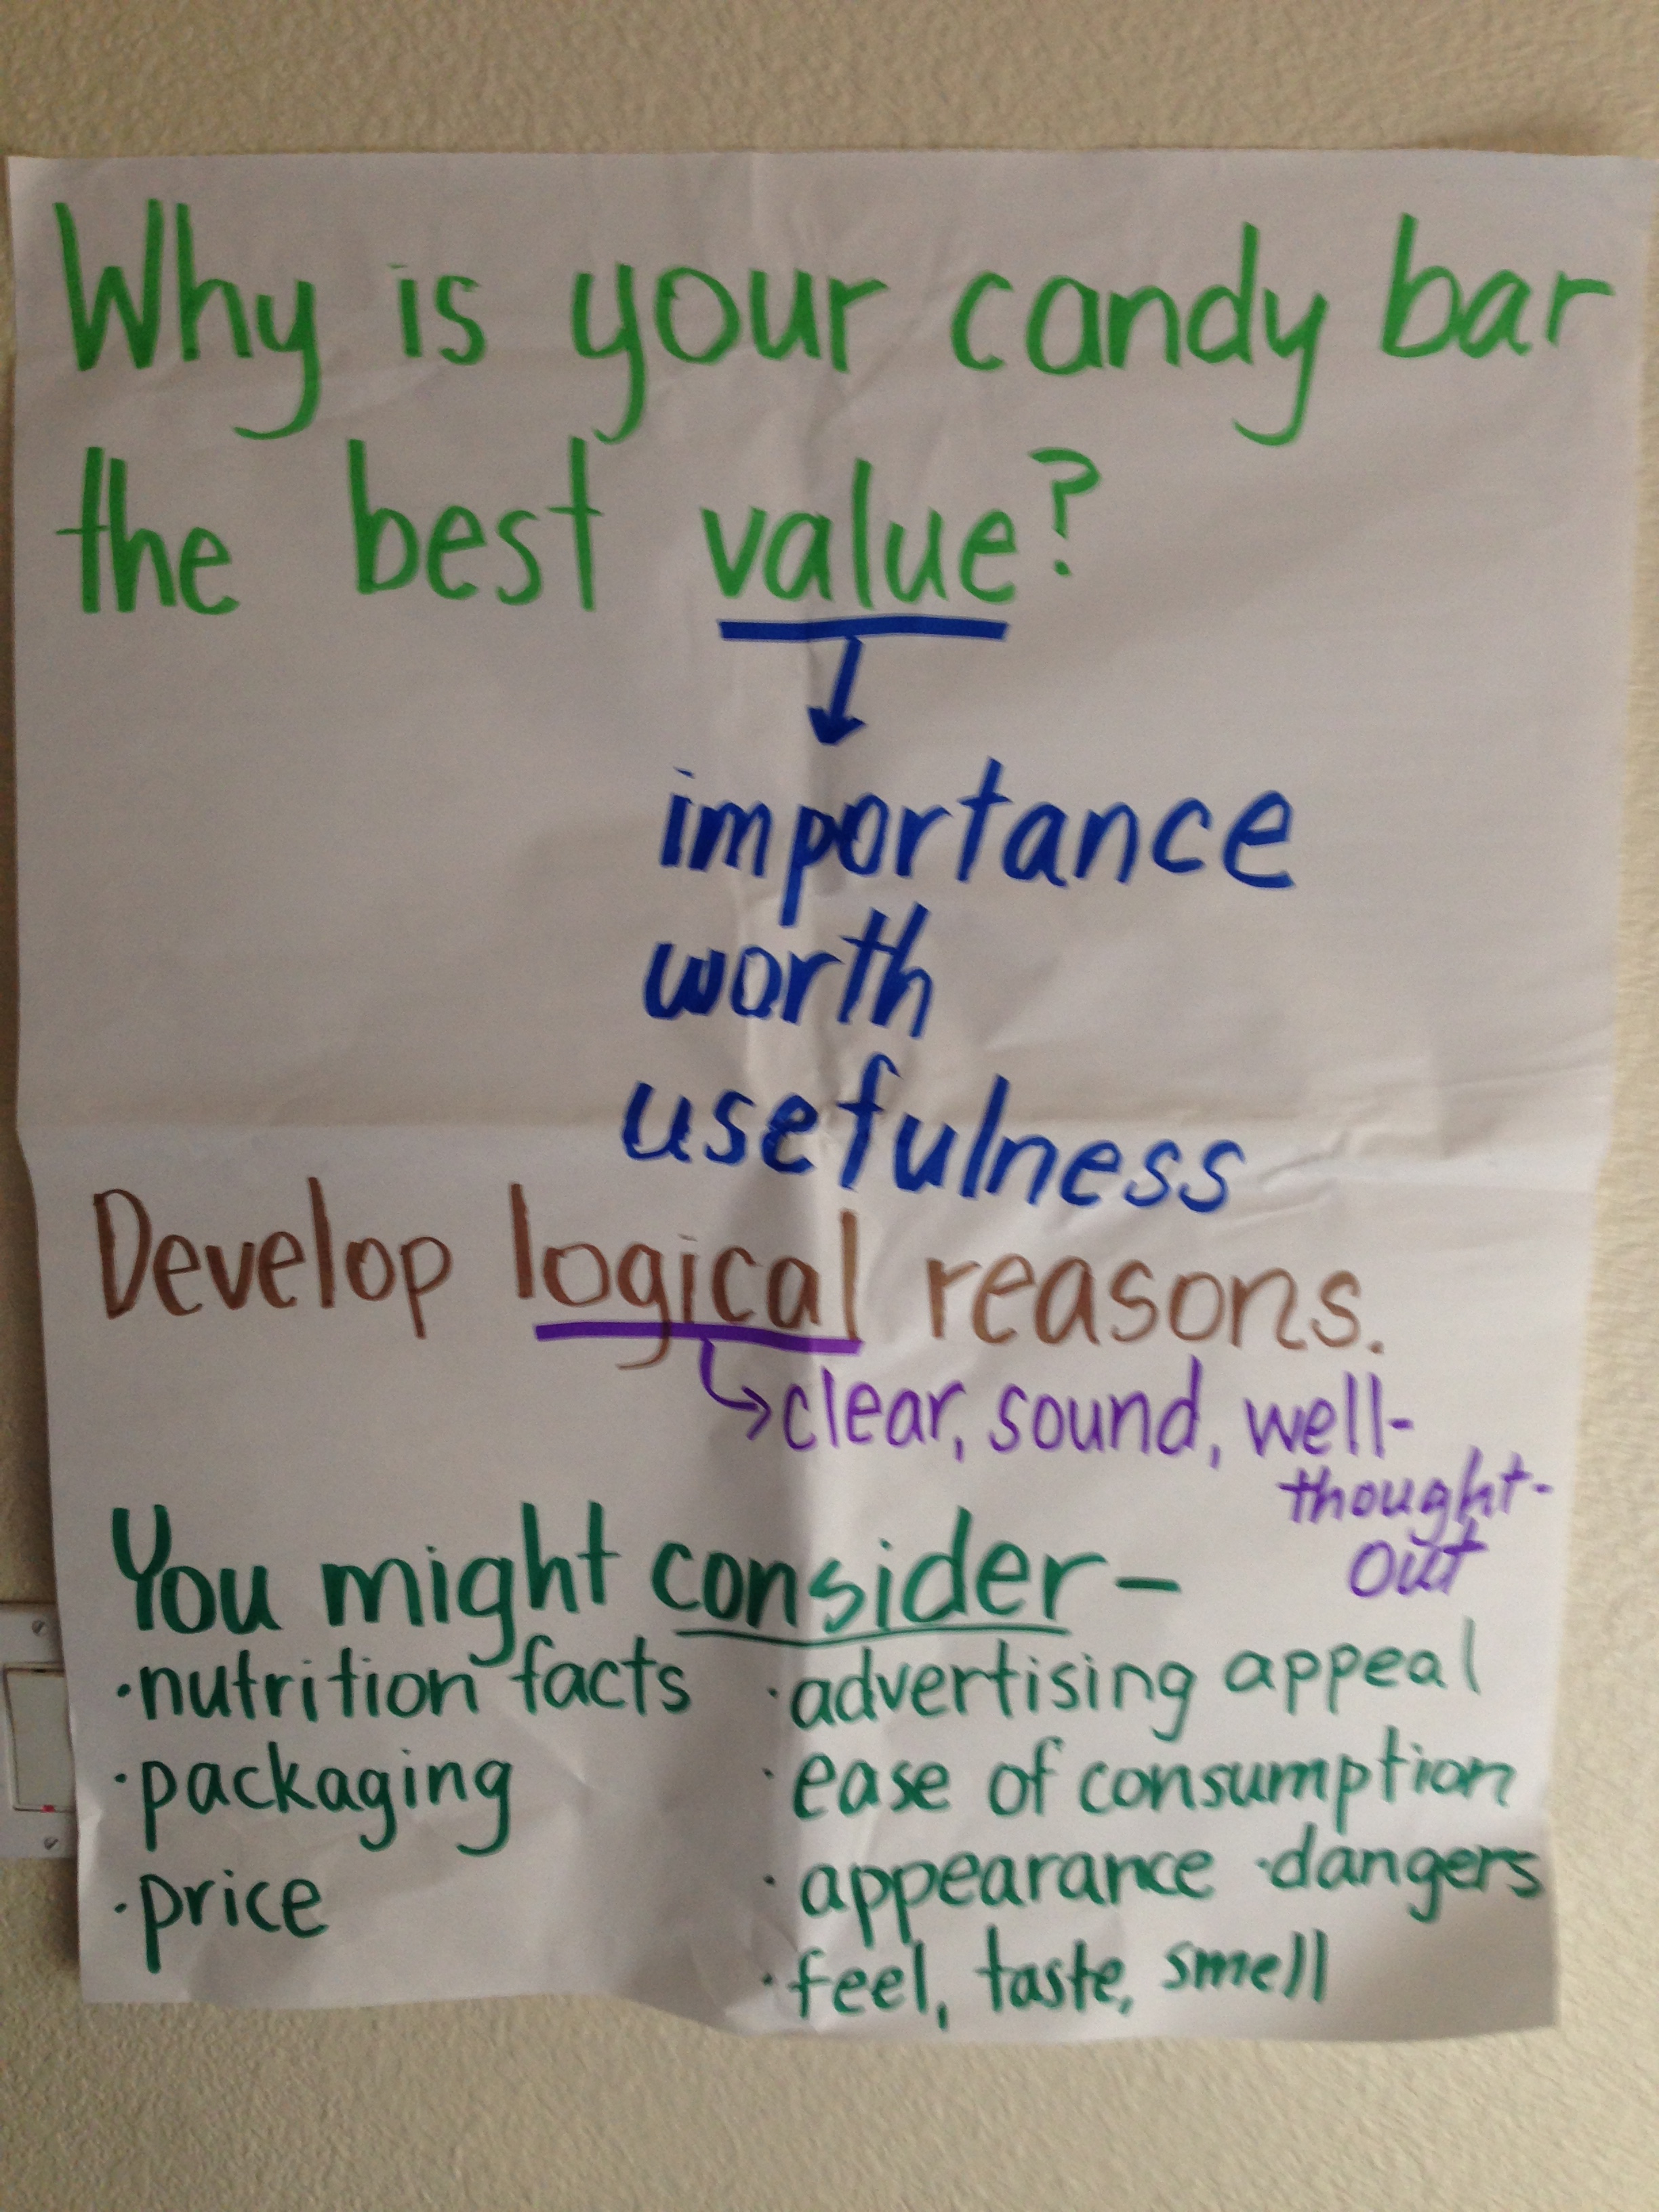 Why is your candy bar
the best value?
importance
worth
usefulness
Develop logical reasons.
clear, sound, well-
thought-
out
You might consider-
·nutrition facts
·packaging
·price
·advertising appeal
·ease of consumption
·appearance ·dangers
·feel, taste, smell